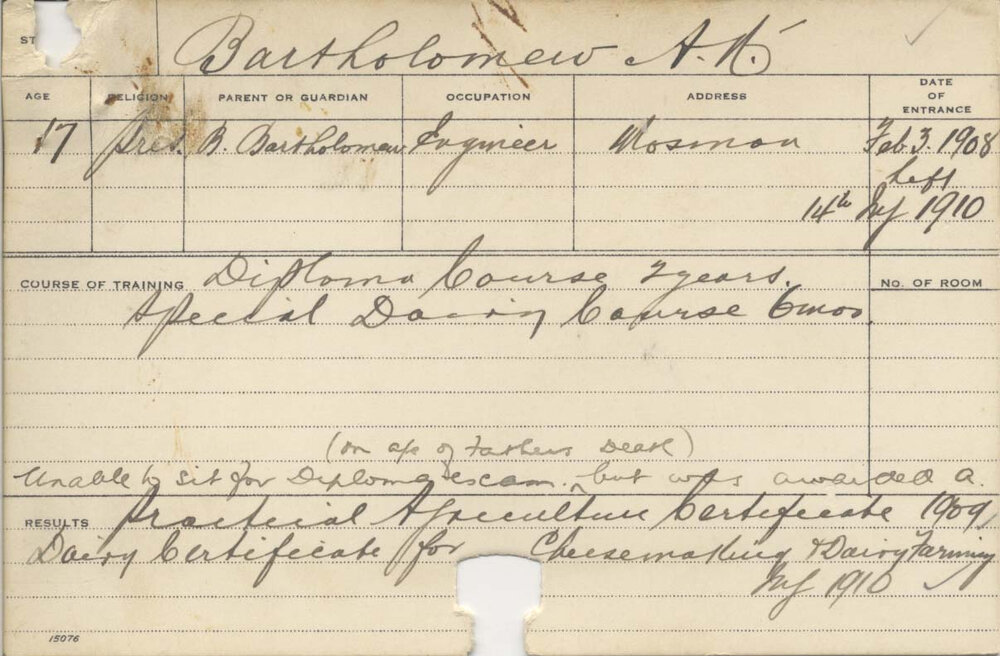 ST
Bartholomew A.K.
AGE RELIGION PARENT OR GUARDIAN OCCUPATION ADDRESS DATE OF ENTRANCE
17 Pres. B. Bartholomew Engineer Mosman Feb. 3. 1908
Left
14th 1910
COURSE OF TRAINING Diploma Course 2 years. No. OF ROOM
Special Dairy Course 6 mos.
(on a/c of Fathers Death)
Unable to sit for Diploma exam. but was awarded a
RESULTS Practical Agriculture Certificate 1909
Dairy Certificate for Cheesemaking & Dairy Farming
1910
15076